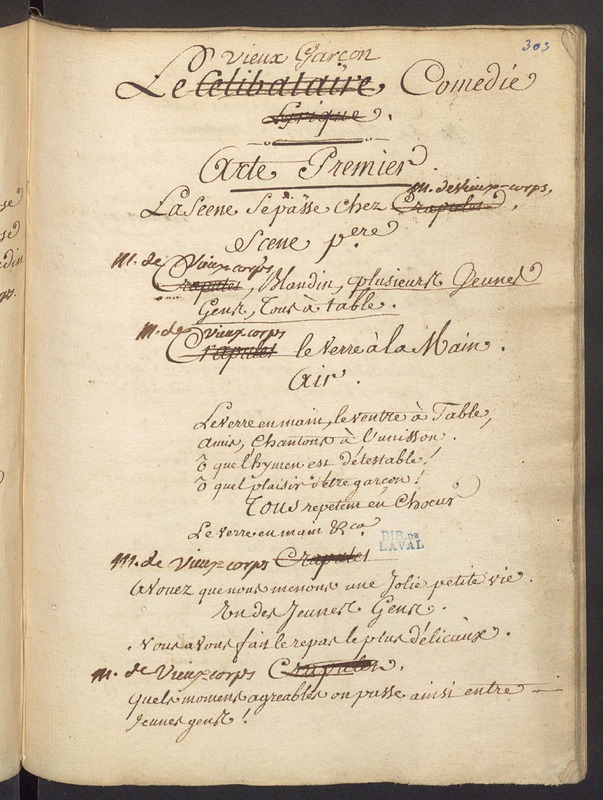 303
Vieux Garçon
Le Celibataire, Comedie
Lyrique.
Acte Premier
M. de Vieux-corps,
La Scene se passe chez Crapulet,
Scene p.ere
M. de Vieux corps
Crapulet, Blandin, plusieurs Jeunes
Gens, Tous à table.
M. de Vieux corps
Crapulet le verre à la Main.
Air.
Le verre en main, le ventre à Table,
amis, Chantons à l'unisson.
ô quel hymen est détestable!
ô quel plaisir d'être garçon!
Tous repetent en Choeur
Le verre en main &ca
BIB. DE
LAVAL
M. de Vieux-corps Crapulet
avouez que nous menons une Jolie petite vie.
Un des Jeunes Gens.
Nous avons fait le repas le plus délicieux.
M. de Vieux-corps Crapulet.
quels momens agreables on passe ainsi entre
Jeunes gens!